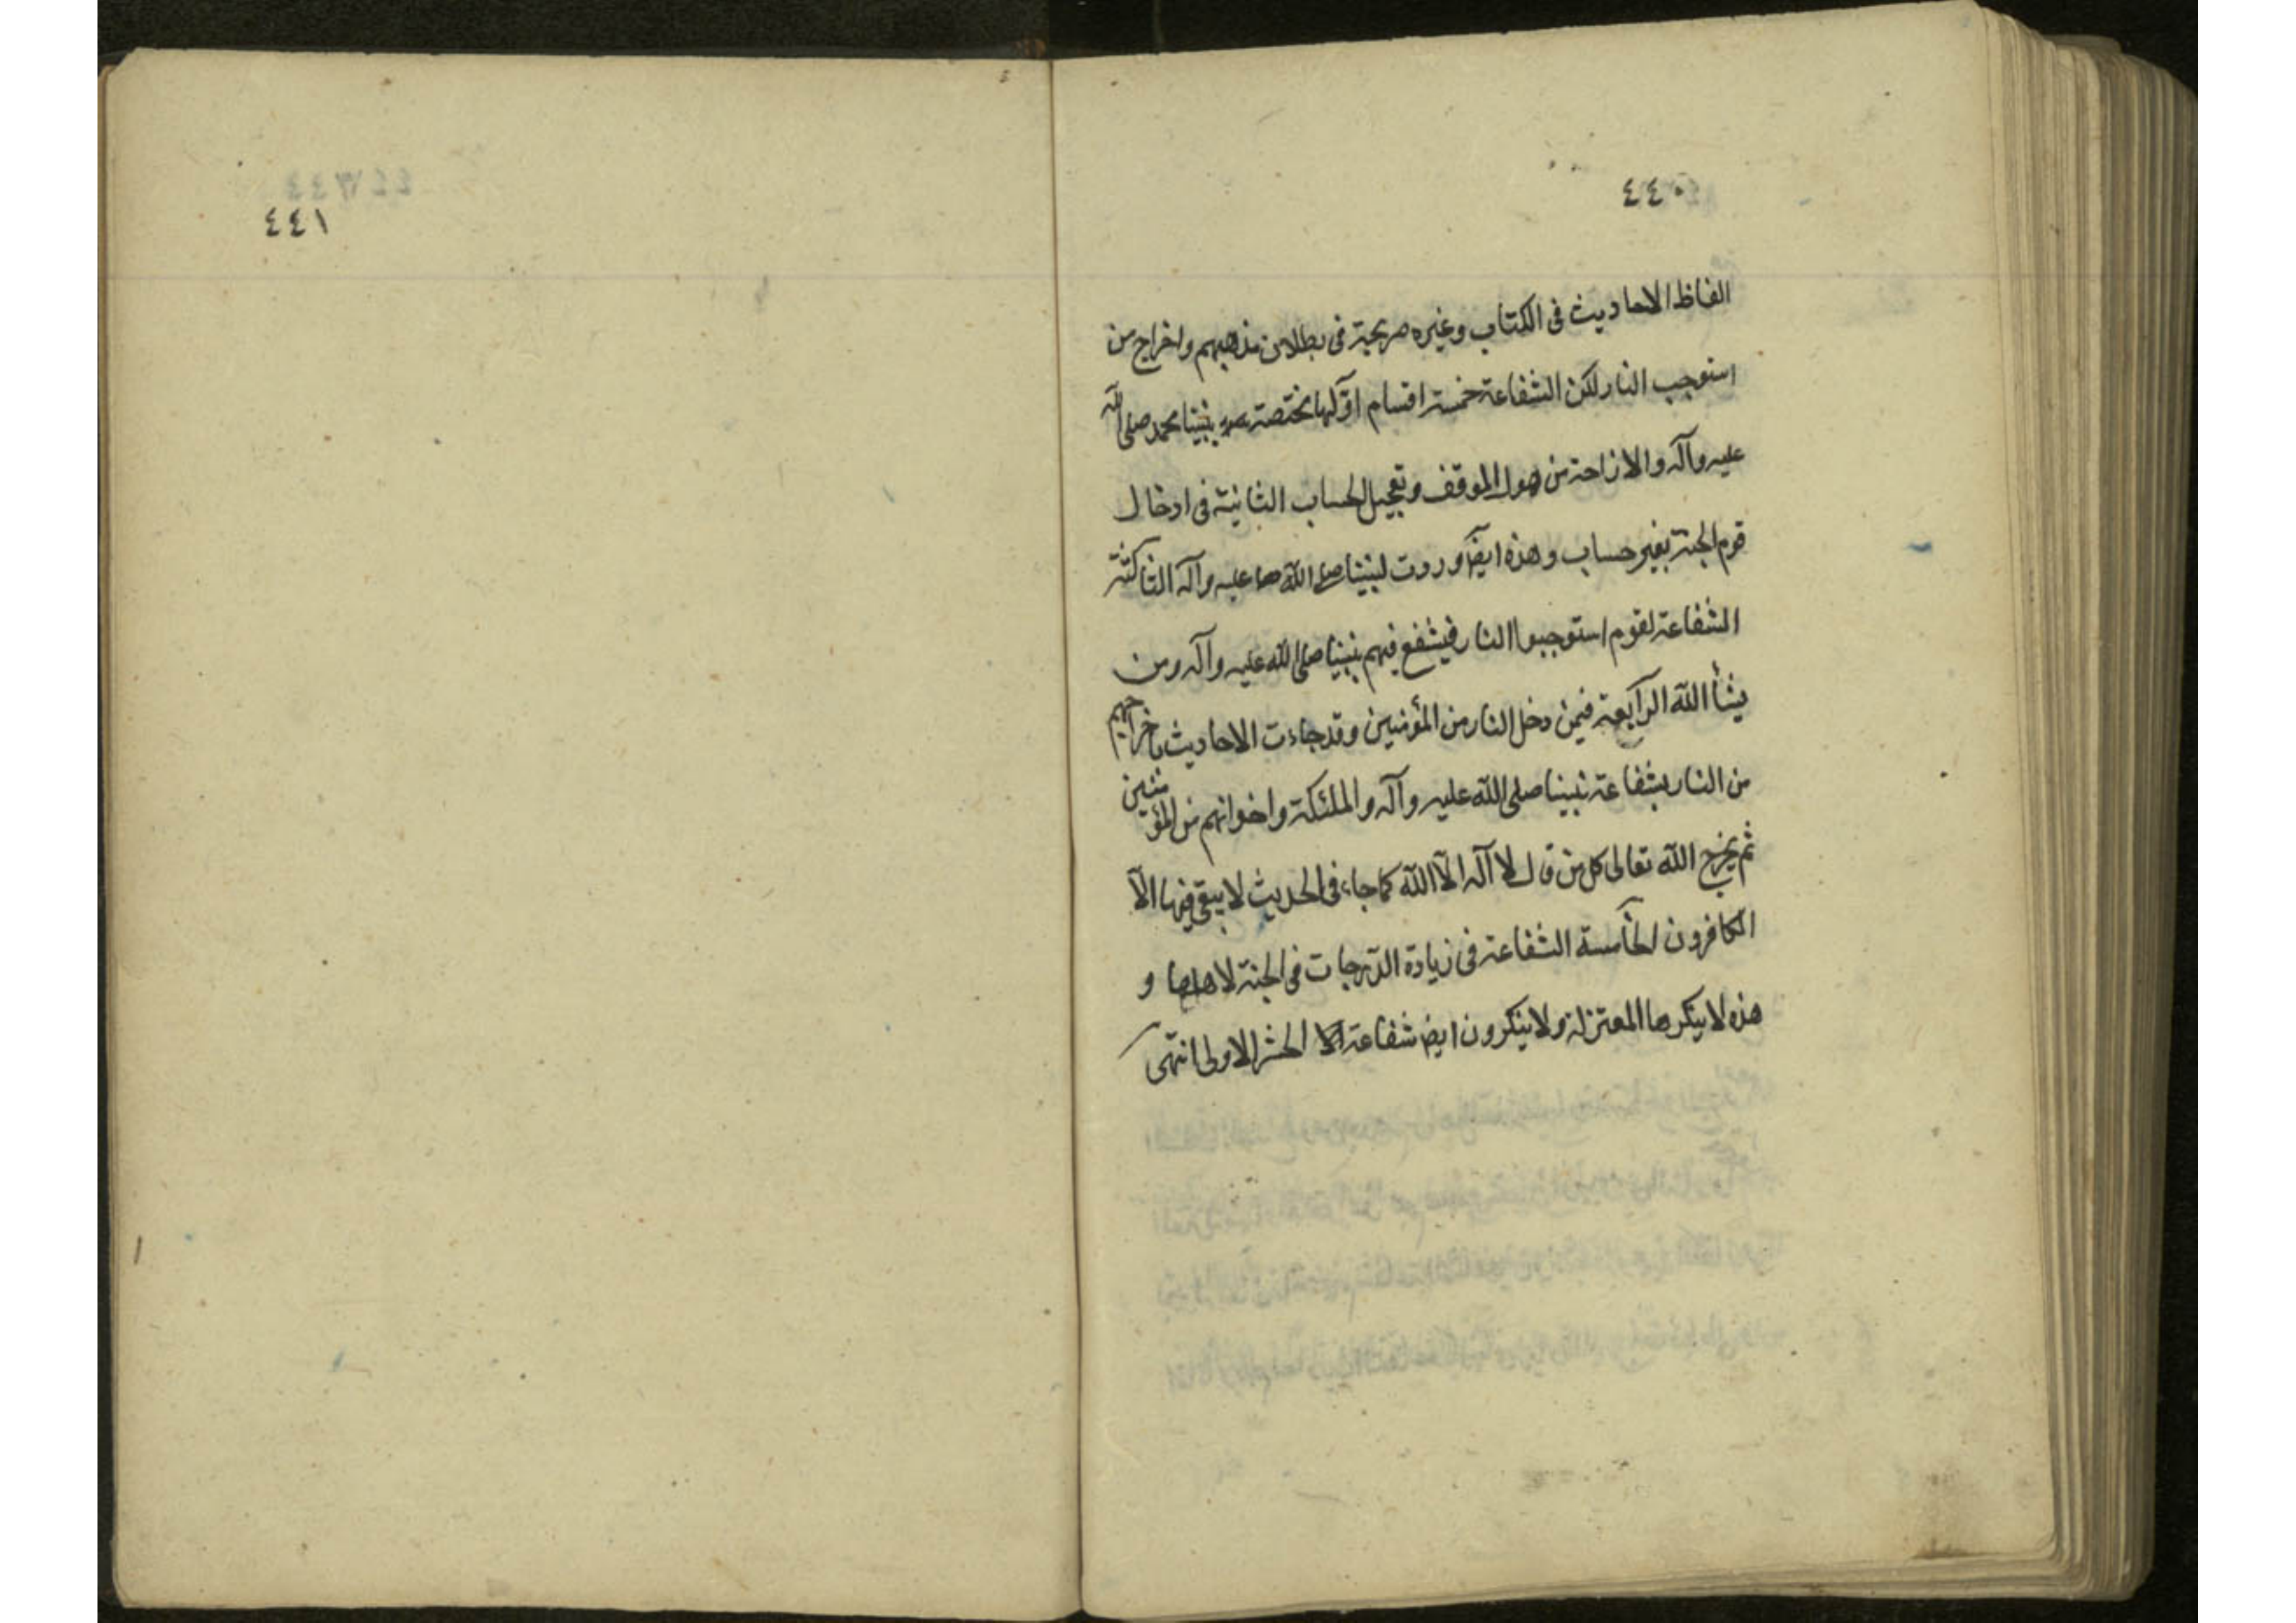 ٤٤٠
الفاظ الاحاديث فى الكتاب وغيره صريحة فى بطلان مذهبهم واخراج من
استوجب النار لكن الشفاعة خمسة اقسام اوّلها مختصة بنبينا محمد صلى الله
عليه وآله والازاحة من هول الموقف وتعجيل الحساب الثانية فى ادخال
قوم الجنة بغير حساب وهذه ايضاً وردت لنبينا صلى الله عليه وآله الثالثة
الشفاعة لقوم استوجبوا النار فيشفع فيهم نبينا صلى الله عليه وآله ومن
يشأ الله الرابعة فيمن دخل النار من المؤمنين وقد جاءت الاحاديث باخراجهم
من النار بشفاعة نبينا صلى الله عليه وآله والملئكة واخوانهم من المؤمنين
ثم يخرج الله تعالى كل من قال لا آله الّا الله كما جاء فى الحديث لا يبقى فيها الّا
الكافرون الخامسة الشفاعة فى زيادة الدّرجات فى الجنة لاهلها و
هذه لا ينكرها المعتزلة ولا ينكرون ايض شفاعة الحشر الاولى انتهى
٤٤١